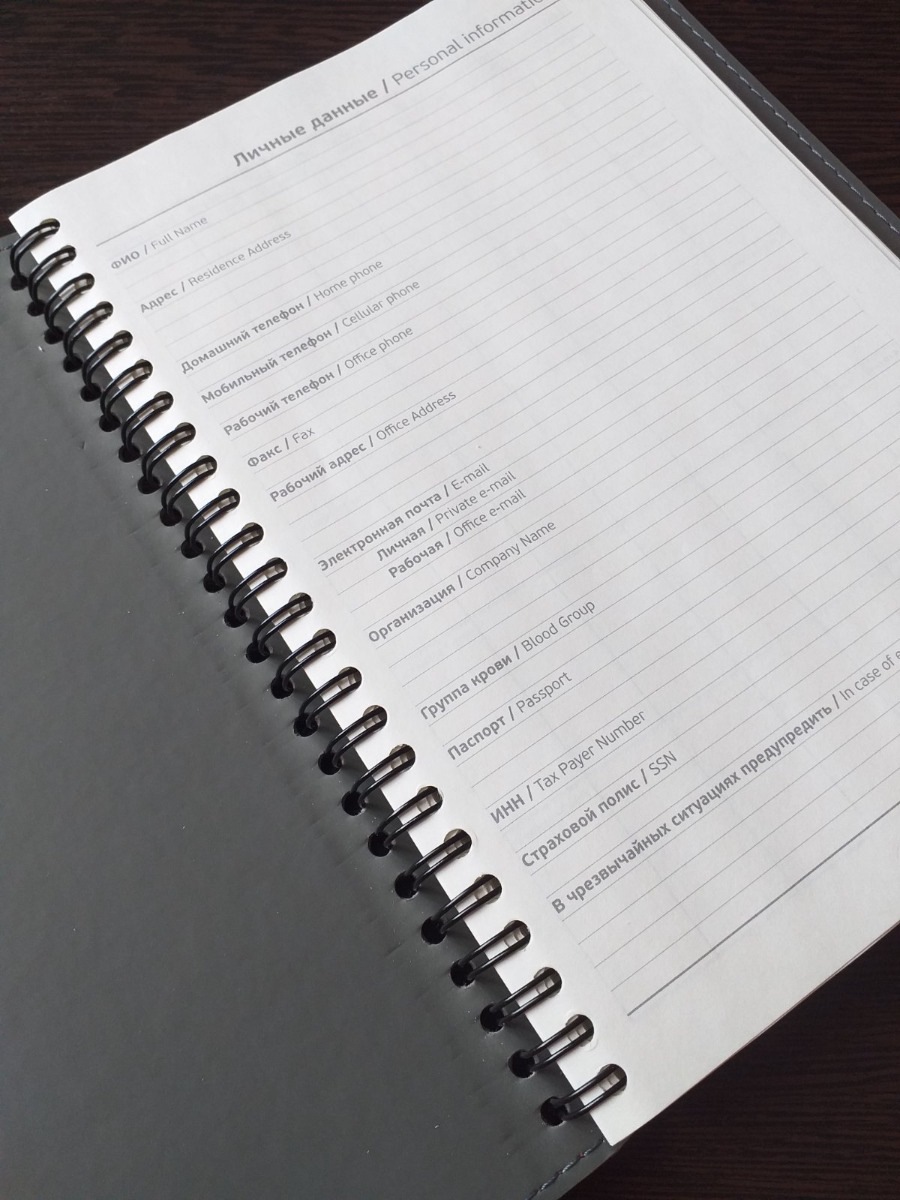 Личные данные / Personal
ФИО / Full Name
Адрес / Residence Address
Домашний телефон / Home phone
Мобильный телефон / Cellular phone
Рабочий телефон / Office phone
Факс / Fax
Рабочий адрес / Office Address
Электронная почта / E-mail
Личная / Private e-mail
Рабочая / Office e-mail
Организация / Company Name
Группа крови / Blood Group
Паспорт / Passport
ИНН / Tax Payer Number
Страховой полис / SSN
В чрезвычайных ситуациях предупредить / In case of